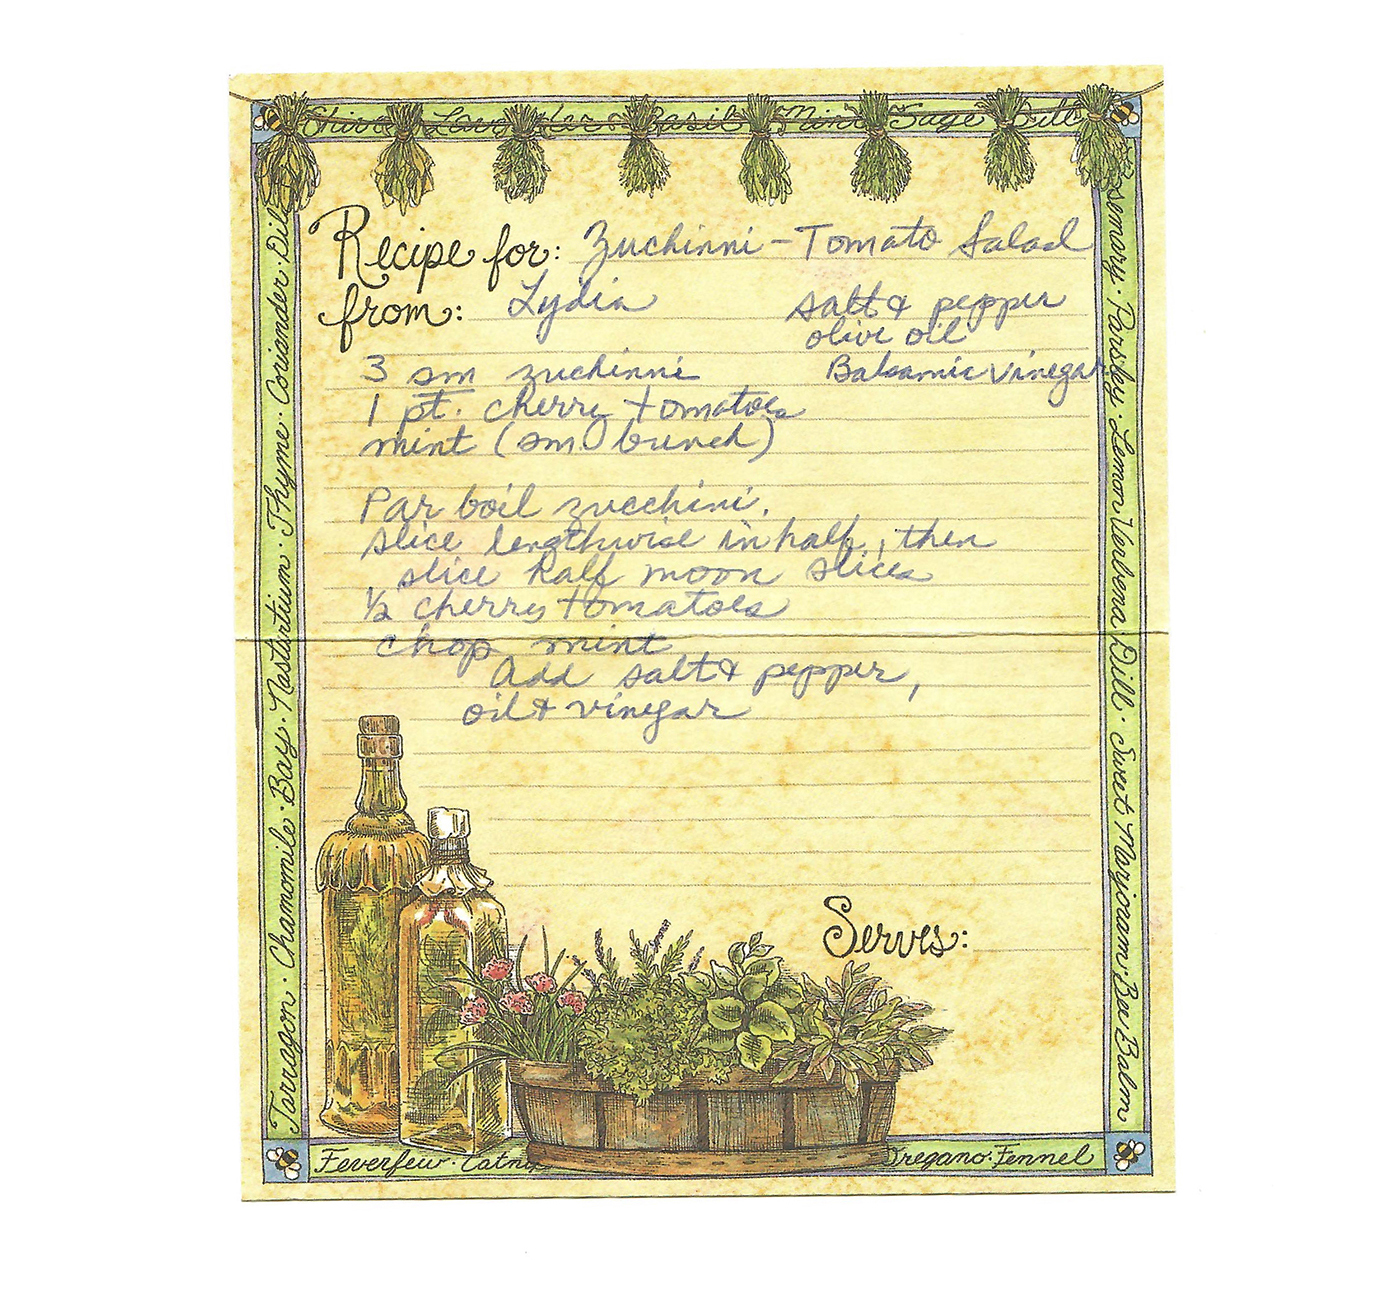 Chive Lavender Basil Mint Sage Dill
Recipe for: Zuchinni - Tomato Salad
from: Lydia
salt & pepper
olive oil
Balsamic vinegar
3 sm zuchinni
1 pt. cherry tomatoes
mint (sm. bunch)
Par boil zucchini.
slice lengthwise in half, then
slice half moon slices
1/2 cherry tomatoes
chop mint
Add salt & pepper,
oil & vinegar
Serves:
Tarragon · Chamomile · Bay · Nasturtium · Thyme · Coriander · Dill
Rosemary · Parsley · Lemon Verbena Dill · Sweet Marjoram · Bee Balm
Feverfew · Catnip
Oregano · Fennel